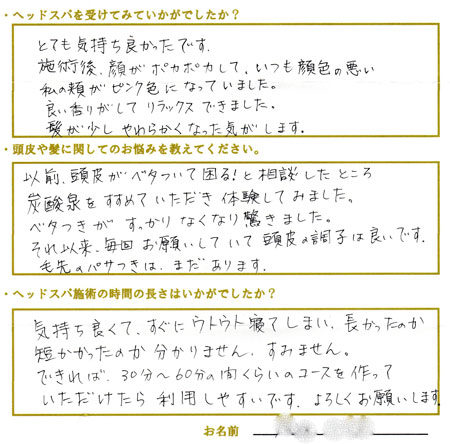 ・ヘッドスパを受けてみていかがでしたか？
とても気持ち良かったです.
施術後、顔がポカポカして、いつも顔色の悪い
私の頬がピンク色になっていました。
良い香りがしてリラックスできました。
髪が少しやわらかくなった気がします.
・頭皮や髪に関してのお悩みを教えてください。
以前、頭皮がベタついて困る!と相談したところ
炭酸泉をすすめていただき体験してみました。
ベタつきがすっかりなくなり驚きました。
それ以来、毎回お願いしていて頭皮の調子は良いです.
毛先のパサつきは、まだあります.
・ヘッドスパ施術の時間の長さはいかがでしたか？
気持ち良くて、すぐにウトウト寝てしまい、長かったのか
短かかったのか分かりません、すみません。
できれば、30分〜60分の間くらいのコースを作って
いただけたら利用しやすいです. よろしくお願いします
お名前